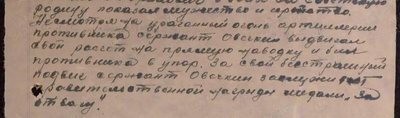 родину показал мужество и геройство.
Несмотря на ураганный огонь артиллерии
противника сержант Овсянкин выдвигал
свой расчет на прямую наводку и бил
противника в упор. За свой бесстрашный
подвиг сержант Овсянкин заслуживает
правительственной награды медали „За
отвагу".